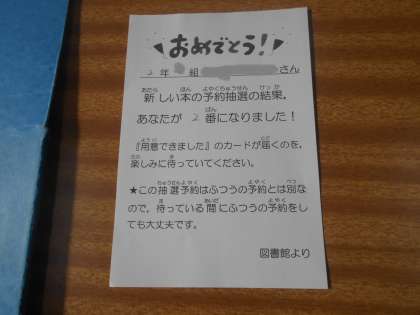 おめでとう！
2年 組 さん
新しい本の予約抽選の結果，
あなたが 2 番になりました！
『用意できました』のカードが届くのを，
楽しみに待っていてください。
★この抽選予約はふつうの予約とは別な
ので，待っている間にふつうの予約をし
ても大丈夫です。
図書館より